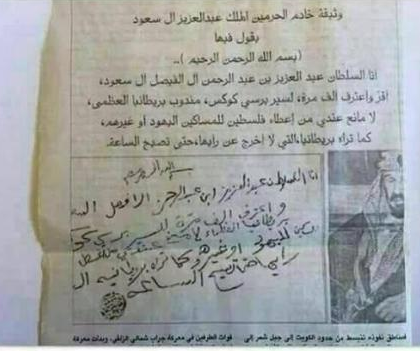 وثيقة خادم الحرمين الملك عبدالعزيز ال سعود
يقول فيها
(بسم الله الرحمن الرحيم )..
انا السلطان عبد العزيز بن عبد الرحمن ال الفيصل ال سعود،
اقر واعترف الف مرة، لسير برسي كوكس، مندوب بريطانيا العظمى،
لا مانع عندي من إعطاء فلسطين للمساكين اليهود او غيرهم،
كما تراه بريطانيا،التي لا اخرج عن رايها،حتى تصبح الساعة.
انا السلطان عبد العزيز ابن عبد الرحمن
الف مرة للسير برسي
لا مانع عندي من
لليهود او غيرهم كما تراه بريطانيه
الساعه
فمناطق نفوذه تنبسط من حدود الكويت إلى جبل شمر إلى
قوات الطرفين في معركة جراب شمالي الزلفي، وبدأت معركة